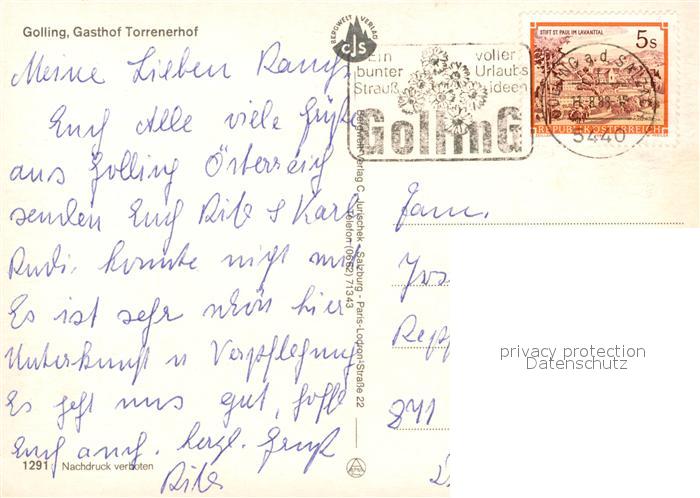 Golling, Gasthof Torrenerhof
Meine Lieben
Euch Alle viele Grüße
aus Golling Österreich
senden Euch Rita & Karl
Rudi. konnte nicht mit
Es ist sehr schön hier
Unterkunft u Verpflegung
Es geht uns gut, hoffe
Euch auch. herzl. Gruß
Rita
1291 Nachdruck verboten
BERGWELT VERLAG
cJs
Bergwelt-Verlag C. Jurischek - Salzburg - Paris-Lodron-Straße 22
Telefon (0662) 71343
Ein voller
bunter Urlaubs
Strauß ideen
GollinG
STIFT ST. PAUL IM LAVANTTAL
5 S
REPUBLIK ÖSTERREICH
GOLLING a.d. SALZACH
5440
Fam.
841
privacy protection
Datenschutz